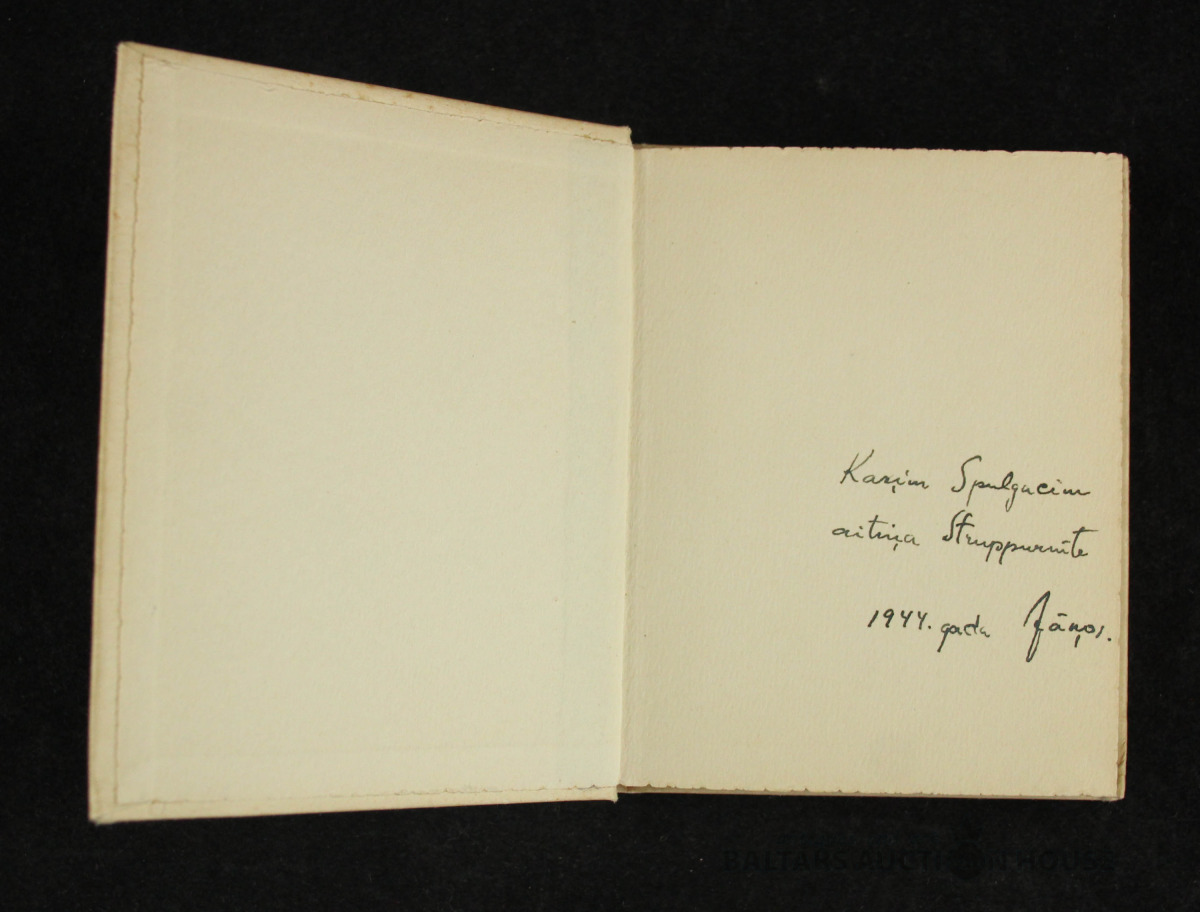 Kaziņim Spulgacim
aitiņa Struppurnīte
1944. gada Jāņos.
BALTARS AUCTION HOUSE